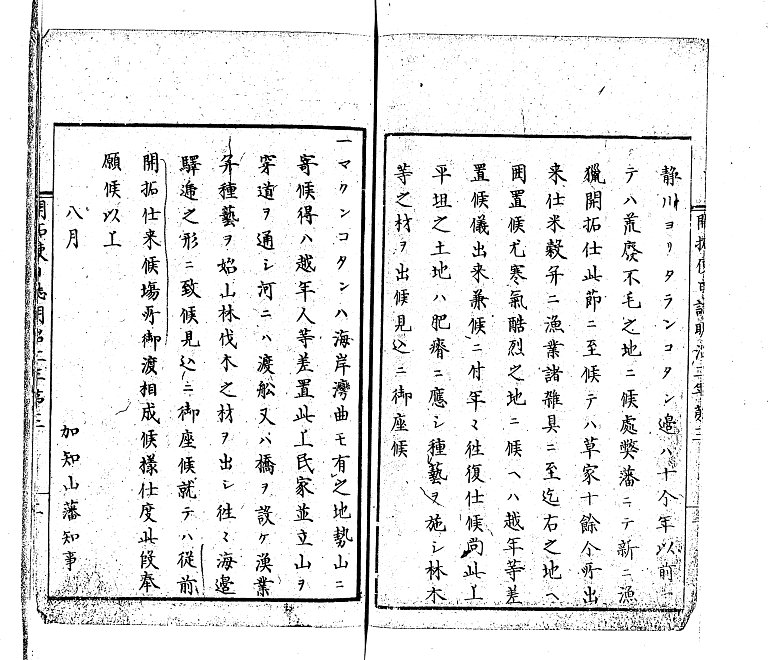 静川ヨリタランコタン邊ハ十ケ年以前一
テハ荒廢不毛之地ニ候處弊藩ニテ新ニ漁
獵開拓仕此節ニ至候テハ草家十餘ケ所出
来仕米穀并ニ漁業諸雜具ニ至迄右之地ヘ
囲置候尤寒氣酷烈之地ニ候ヘハ越年等差
置候儀出来兼候ニ付年々往復仕候尚此上
平坦之土地ハ肥瘠ニ應シ種藝ヲ施シ林木
等之材ヲ出候見込ニ御座候
一マクンコタンハ海岸灣曲モ有之地勢山ニ
寄候得ハ越年人等差置此上民家並立山ヲ
穿道ヲ通シ河ニハ渡舩又ハ橋ヲ設ケ漁業
并種藝ヲ始山林伐木之材ヲ出シ往々海邊
驛逓之形ニ致候見込ニ御座候就テハ従前
開拓仕来候場所御渡相成候様仕度此段奉
願候以上
八月
加知山藩知事